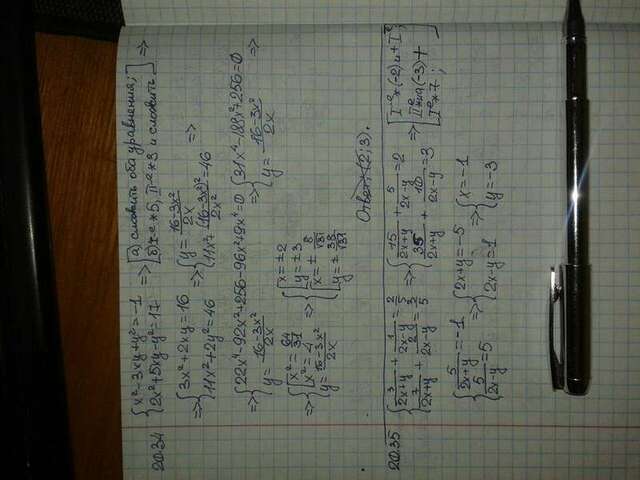 20.34 { x²-3xy+y²=-1 2x²+5xy-y²=17 => [ а) сложить оба уравнения; б) I-е*5, II-е*3 и сложить ] =>
=> { 3x²+2xy=16 11x²+2y²=46 => { y=(16-3x²)/2x 11x²+(16-3x²)²/2x²=46 =>
=> { 22x⁴-92x²+256-96x²+9x⁴=0 y=(16-3x²)/2x => { 31x⁴-188x²+256=0 y=(16-3x²)/2x =>
=> { [ x²=64/31 x²=4 y=(16-3x²)/2x => { [ x=±2 y=±3 x=±8/√31 y=±38/√31
Ответ: (2; 3).
20.35 { 3/(2x+y)+1/(2x-y)=2/5 7/(2x+y)+2/(2x-y)=3/5 => { 15/(2x+y)+5/(2x-y)=2 35/(2x+y)+10/(2x-y)=3 =>
{ 5/(2x+y)=-1 5/(2x-y)=5 => { 2x+y=-5 2x-y=1 => { x=-1 y=-3